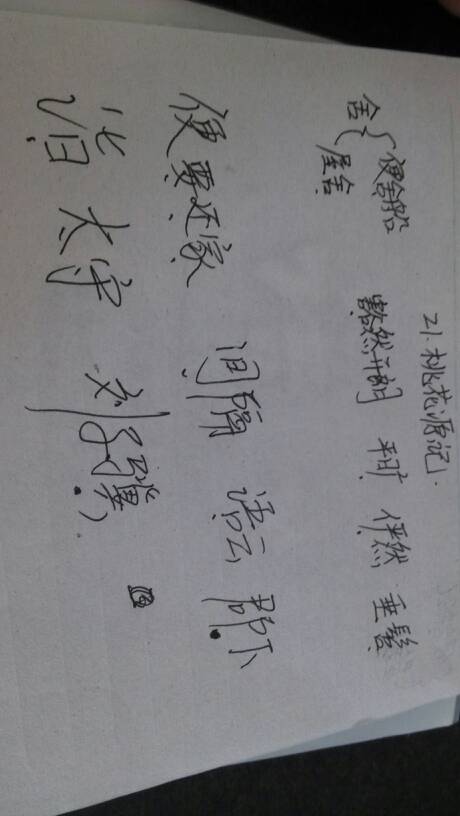 21.桃花源记.
舍 便舍船
屋舍
豁然开朗 平旷 俨然 垂髫
便要还家 间隔 语云 郡下
诣太守 刘子骥)